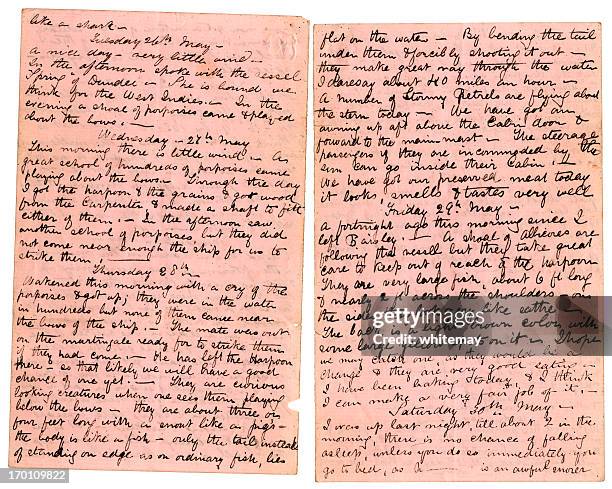 like a shark -
Tuesday 26th May -
A nice day - very little wind -
In the afternoon spoke with the vessel
Spring of Dundee - She is bound we
think for the West Indies. - In the
evening a shoal of porpoises came & played
about the bows. -
Wednesday - 27th May
This morning there is little wind - A
great school of hundreds of porpoises came
playing about the bows. Through the day
I got the harpoon & the grains & got wood
from the Carpenter & made a shaft to fit
either of them. - In the afternoon saw
another school of porpoises, but they did
not come near enough the ship for us to
strike them. -
Thursday 28th
Wakened this morning with a cry of the
porpoises & got up, they were in the water
in hundreds but none of them came near
the bows of the ship - The mate was out
on the martingale ready for to strike them
if they had come. - He has left the harpoon
there - so that likely we will have a good
chance of one yet. - They are curious
looking creatures when one sees them playing
below the bows - they are about three or
four feet long with a snout like a pigs -
the body is like a fish - only the tail instead
of standing on edge as on ordinary fish, lies
flat on the water - By bending the tail
under them & forcibly shooting it out -
they make great way through the water
I daresay about 40 miles an hour -
A number of Stormy Petrels are flying about
the stern today - We have got an
awning up aft above the Cabin door &
forward to the main mast - The steerage
passengers if they are incommoded by the
sun can go inside their Cabin. -
We have got our preserved meat today
it looks, smells & tastes very well
Friday 29th May -
A fortnight ago this morning since I
left - A shoal of are
following the vessel but they take great
care to keep out of reach of the harpoon
They are very large fish, about 6 ft long
& nearly 2 ft across the shoulders, on
the sides like
The back is a light brown color with
some on it - I hope
we may catch one as they would be a
change & they are very good eating -
I have been baking today & I think
I can make a very fair job of it. -
Saturday 30th May -
I was up last night till about 2 in the
morning, there is no chance of falling
asleep, unless you do so immediately you
go to bed, as is an awful snorer
iStock
Credit: whitemay
170109822